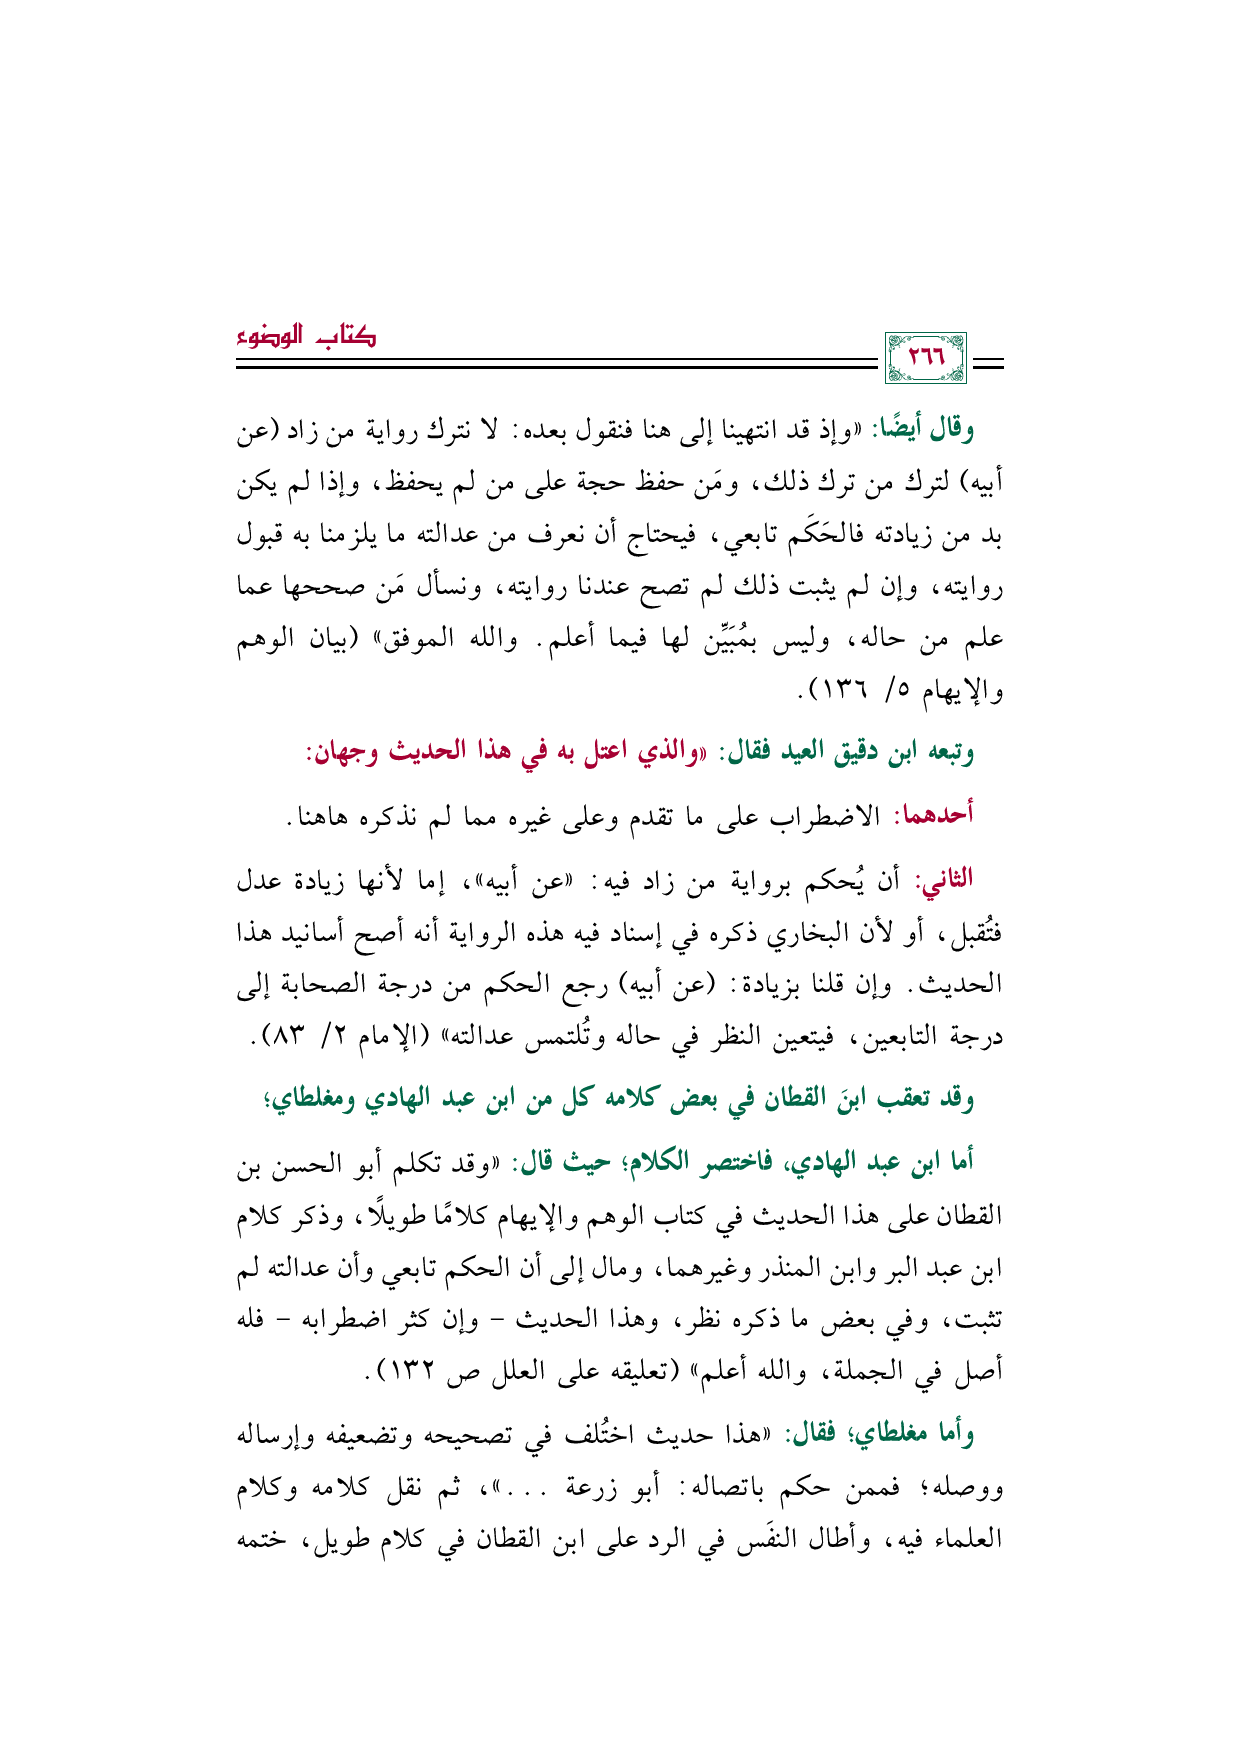 كتاب الوضوء
٢٦٦
وقال أيضًا: «وإذ قد انتهينا إلى هنا فنقول بعده: لا نترك رواية من زاد (عن
أبيه) لترك من ترك ذلك، ومَن حفظ حجة على من لم يحفظ، وإذا لم يكن
بد من زيادته فالحَكَم تابعي، فيحتاج أن نعرف من عدالته ما يلزمنا به قبول
روايته، وإن لم يثبت ذلك لم تصح عندنا روايته، ونسأل مَن صححها عما
علم من حاله، وليس بمُبَيِّن لها فيما أعلم. والله الموفق» (بيان الوهم
والإيهام ٥/ ١٣٦).
وتبعه ابن دقيق العيد فقال: «والذي اعتل به في هذا الحديث وجهان:
أحدهما: الاضطراب على ما تقدم وعلى غيره مما لم نذكره هاهنا.
الثاني: أن يُحكم برواية من زاد فيه: «عن أبيه»، إما لأنها زيادة عدل
فتُقبل، أو لأن البخاري ذكره في إسناد فيه هذه الرواية أنه أصح أسانيد هذا
الحديث. وإن قلنا بزيادة: (عن أبيه) رجع الحكم من درجة الصحابة إلى
درجة التابعين، فيتعين النظر في حاله وتُلتمس عدالته» (الإمام ٢/ ٨٣).
وقد تعقب ابنَ القطان في بعض كلامه كل من ابن عبد الهادي ومغلطاي؛
أما ابن عبد الهادي، فاختصر الكلام؛ حيث قال: «وقد تكلم أبو الحسن بن
القطان على هذا الحديث في كتاب الوهم والإيهام كلامًا طويلًا، وذكر كلام
ابن عبد البر وابن المنذر وغيرهما، ومال إلى أن الحكم تابعي وأن عدالته لم
تثبت، وفي بعض ما ذكره نظر، وهذا الحديث – وإن كثر اضطرابه – فله
أصل في الجملة، والله أعلم» (تعليقه على العلل ص ١٣٢).
وأما مغلطاي؛ فقال: «هذا حديث اختُلف في تصحيحه وتضعيفه وإرساله
ووصله؛ فممن حكم باتصاله: أبو زرعة ...»، ثم نقل كلامه وكلام
العلماء فيه، وأطال النفَس في الرد على ابن القطان في كلام طويل، ختمه